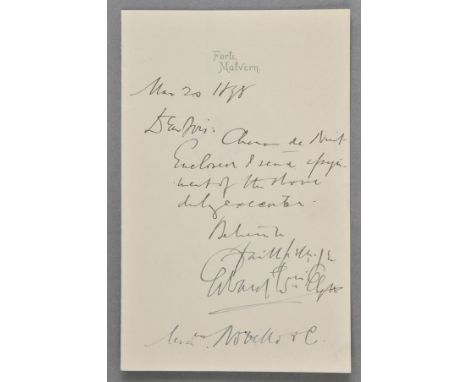 Forte,
Malvern.
Mar 20 1898
Dear Sirs: Chanson de Nuit
Enclosed I send assign-
ment of the above
duly executed.
Believe me
Faithfully yrs
Edward Elgar
Messrs. Novello & C.